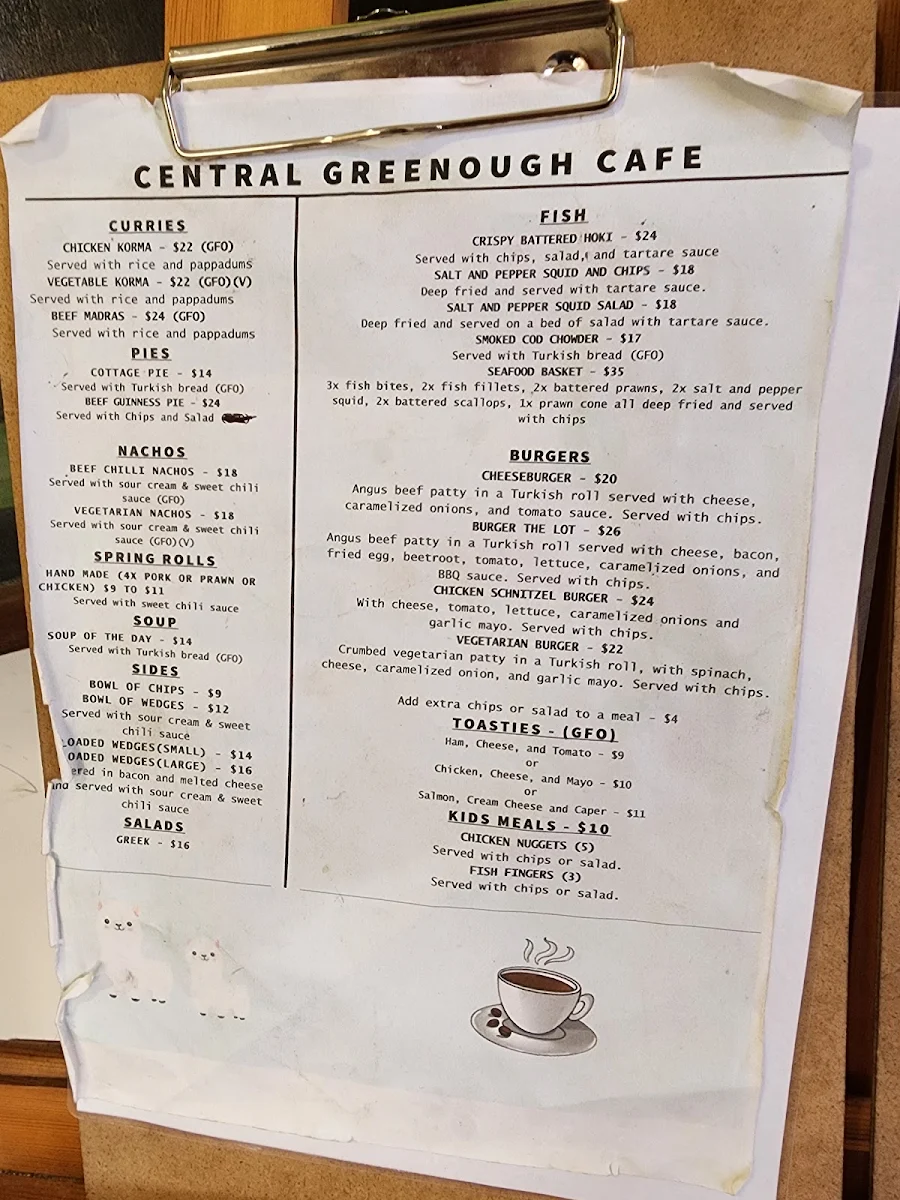 CENTRAL GREENOUGH CAFE
CURRIES
CHICKEN KORMA - $22 (GFO)
Served with rice and pappadums
VEGETABLE KORMA - $22 (GFO)(V)
Served with rice and pappadums
BEEF MADRAS - $24 (GFO)
Served with rice and pappadums
PIES
COTTAGE PIE - $14
Served with Turkish bread (GFO)
BEEF GUINNESS PIE - $24
Served with Chips and Salad
NACHOS
BEEF CHILLI NACHOS - $18
Served with sour cream & sweet chili
sauce (GFO)
VEGETARIAN NACHOS - $18
Served with sour cream & sweet chili
sauce (GFO)(V)
SPRING ROLLS
HAND MADE (4X PORK OR PRAWN OR
CHICKEN) $9 TO $11
Served with sweet chili sauce
SOUP
SOUP OF THE DAY - $14
Served with Turkish bread (GFO)
SIDES
BOWL OF CHIPS - $9
BOWL OF WEDGES - $12
Served with sour cream & sweet
chili sauce
LOADED WEDGES(SMALL) - $14
OADED WEDGES(LARGE) - $16
ered in bacon and melted cheese
and served with sour cream & sweet
chili sauce
SALADS
GREEK - $16
FISH
CRISPY BATTERED HOKI - $24
Served with chips, salad, and tartare sauce
SALT AND PEPPER SQUID AND CHIPS - $18
Deep fried and served with tartare sauce.
SALT AND PEPPER SQUID SALAD - $18
Deep fried and served on a bed of salad with tartare sauce.
SMOKED COD CHOWDER - $17
Served with Turkish bread (GFO)
SEAFOOD BASKET - $35
3x fish bites, 2x fish fillets, 2x battered prawns, 2x salt and pepper
squid, 2x battered scallops, 1x prawn cone all deep fried and served
with chips
BURGERS
CHEESEBURGER - $20
Angus beef patty in a Turkish roll served with cheese,
caramelized onions, and tomato sauce. Served with chips.
BURGER THE LOT - $26
Angus beef patty in a Turkish roll served with cheese, bacon,
fried egg, beetroot, tomato, lettuce, caramelized onions, and
BBQ sauce. Served with chips.
CHICKEN SCHNITZEL BURGER - $24
With cheese, tomato, lettuce, caramelized onions and
garlic mayo. Served with chips.
VEGETARIAN BURGER - $22
Crumbed vegetarian patty in a Turkish roll, with spinach,
cheese, caramelized onion, and garlic mayo. Served with chips.
Add extra chips or salad to a meal - $4
TOASTIES - (GFO)
Ham, Cheese, and Tomato - $9
or
Chicken, Cheese, and Mayo - $10
or
Salmon, Cream Cheese and Caper - $11
KIDS MEALS - $10
CHICKEN NUGGETS (5)
Served with chips or salad.
FISH FINGERS (3)
Served with chips or salad.